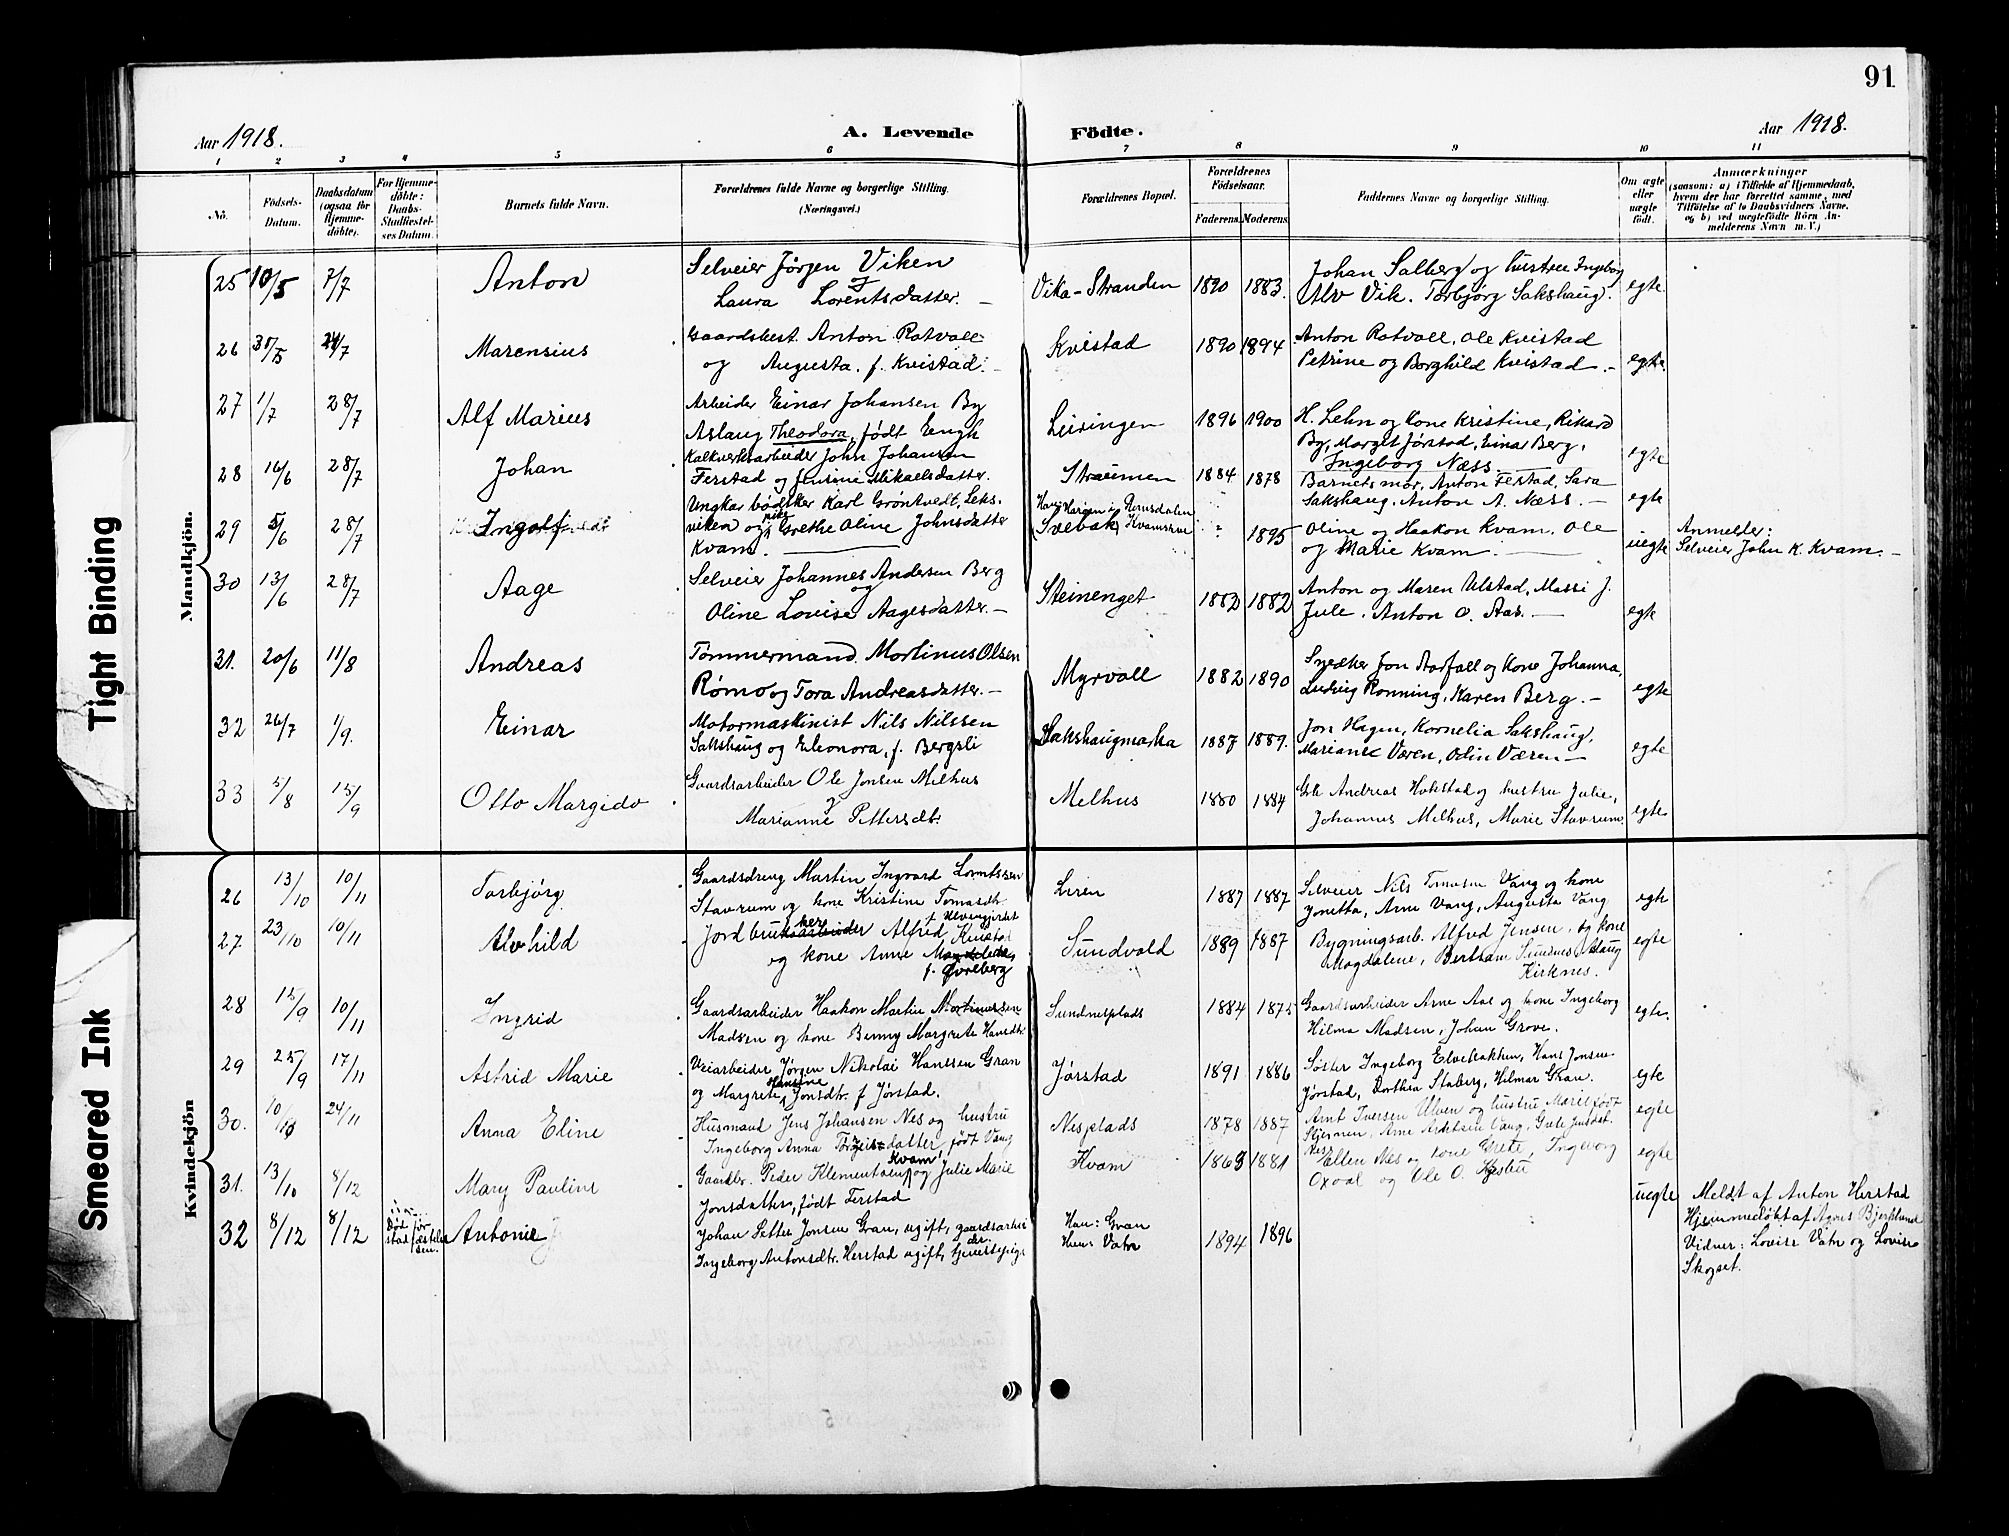 91
Aar 1918. A. Levende Födte. Aar 1918.
1 2 3 4 5 6 7 8 9 10 11
No. Födsels-Datum. Daabsdatum (ogsaa for Hjemmedöbte). For Hjemmedöbte: Daabs-Stadfæstelses Datum. Barnets fulde Navn. Forældrenes fulde Navne og borgerlige Stilling. (Næringsvei.) Forældrenes Bopæl. Forældrenes Födselsaar. Faderens. Moderens. Faddernes Navne og borgerlige Stilling. Om ægte eller uægte födt. Anmærkninger (saasom: a) i Tilfælde af Hjemmedaab, hvem der har forrettet samme, med Tilföielse af to Daabsvidners Navne, og b) ved uægtefödte Börn Anmelderens Navn m. V.)
Mandkjön.
25 10/5 7/7 Anton Selveier Jørgen Viken og
Laura Lorentsdatter. Vika-Stranden 1890 1883. Johan Salberg og hustru Ingebor
Alv Vik. Torbjørg Sakshaug. egte
26 31/5 21/7 Marensius Gaardsbest. Anton Ratvoll
og Augusta. f. Kvistad. Kvistad 1890 1894 Anton Ratvoll, Ole Kvistad
Petrine og Borghild Kvistad. egte
27 1/7 28/7 Alf Marius Arbeider Einar Johansen By
Aslaug Theodora, født Lengh Leiringen 1896 1900 H. Lehn og kone Kristine, Rikard
By, Marget Jørstad, Einar Berg,
Ingeborg Næss. egte
28 16/6 28/7 Johan Kalkverksarbeider John Johansen
Ferstad og Jensine Mikaelsdatter. Straumen 1884 1878 Barnets mor, Anton Festad, Sara
Sakshaug, Anton A. Næss. egte
29 5/6 28/7 Ingolf Ungkar bødtker Karl Grøntvedt, Leks-
viken og pike Grethe Oline Johnsdatter
Kvam. Svebak 1895 Oline og Haakon Kvam. Ole
og Marie Kvam. uegte Anmelder:
Selveier John K. Kvam.
30 13/6 28/7 Aage Selveier Johannes Andersen Berg
og
Oline Lovise Aagesdatter. Steinenget 1882 1882 Anton og Maren Ulstad, Massi J.
Jule. Anton O. Aas. egte
31. 20/6 11/8 Andreas Tømmermand Mortinus Olsen
Rømo og Tora Andreasdatter. Myrvoll 1882 1890 Snedker Jon Aarfall og Kone Johanna,
Ludvig Rønning, Karen Berg. egte
32 26/7 1/9. Einar Motormaskinist Nils Nilssen
Sakshaug og Eleonora, f. Bergsli Sakshaugmarka 1887 1889. Jon Hagen, Kornelia Sakshaug,
Marianne Væren, Odin Væren egte
33 5/8 15/9 Otto Margido Gaardsarbeider Ole Jonsen Melhus
og
Marianne Pettersdt. Melhus 1880 1884 Gbr. Andreas Hokstad og hustru Julie,
Johannes Melhus, Marie Stavrum. egte
Kvindekjön
26 13/10 10/11 Torbjörg Gaardsdreng Martin Ingvard Lorntssen
Stavrum og kone Kristine Tomasdt. Liren 1887 1887 Selveier Nils Tomasen Vang og kone
Jonetta, Arne Vang, Augusta Vang egte
27 23/10 10/11 Alvhild Jordbrukere Alfred Kristad
og kone Anne Magdalena
f. Øvreberg Sundvold 1889 1887 Bygningsarb. Alfred Jensen og kone
Magdalene, Bertham Sundnes, Aslaug
Kirknes. egte
28 15/9 10/11 Ingrid Gaardsarbeider Haakon Martin Martinussen
Madsen og kone Benny Margrete Hansdt. Sundnesplads 1884 1875 Gaardsarbeider Arne Aas og kone Ingeborg
Hilma Madsen, Johan Grove. egte.
29 25/9 17/11 Astrid Marie Veiarbeider Jörgen Nikolai Hanssen Gran
og Margrete Hansine Jonsdtr. f Jörstad. Jörstad 1891 1886 Söster Ingeborg Elvebakken, Hans Jonsen
Jörstad, Dorthea Staberg, Hilmar Gran. egte
30. 10/10 24/11 Anna Eline Husmand Jens Johansen Nes og hustru
Ingeborg Anna Torgeirsdatter, født Vang Nesplads 1878 1887 Arnt Iversen Ulven og hustru Maret født
Stjernen, Arne Arntsen Vang, Gule Jensdt.
Nes egte
31. 13/10 8/12 Mary Pauline Gaardbr. Peder Klementsen Kvam og Julie Marie
Jonsdatter, født Ferstad Kvam 1869 1881 Ellen Nes og kone Grete, Ingeborg
Oxaal og Ole O. egte
32 8/12 8/12 Død før stadfæstelsen. Antonie Johan Petter Jonsen Gran, ugift, gaardsarbeider.
Ingeborg Antonsdtr. Herstad ugift, tjenestepige Han: Gran
Hun: Vatn 1894 1896 uegte Meldt af Anton Herstad
Hjemmedøbt af Agnes Bjerklund
Vidner: Lovise Vatn og Lovise
Skogset.
Tight Binding
Smeared Ink